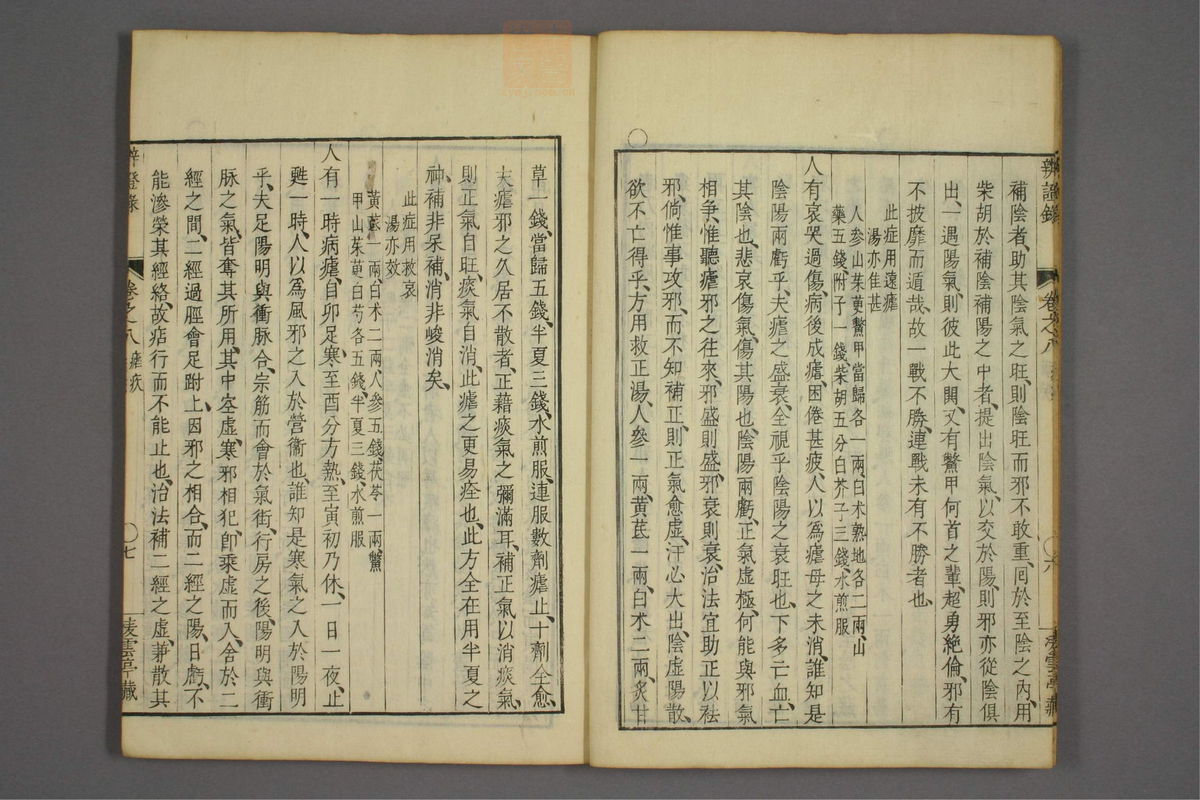 辨證錄 卷之八
補陰者、助其陰氣之旺、則陰旺而邪不敢重回於至陰之內、用
柴胡於補陰補陽之中者、提出陰氣、以交於陽、則邪亦從陰俱
出、一遇陽氣、則彼此大鬨、又有鱉甲何首之輩、超勇絶倫、邪有
不披靡而遁哉、故一戰不勝、連戰未有不勝者也、
此症用遠瘧
湯亦佳甚
人參山茱萸鱉甲當歸各一兩、白术熟地各二兩、山
藥五錢、附子一錢、柴胡五分、白芥子三錢、水煎服
人有哀哭過傷、病後成瘧、困倦甚疲、人以爲瘧母之未消、誰知是
陰陽兩虧乎、夫瘧之盛衰、全視乎陰陽之衰旺也、下多亡血、亡
其陰也、悲哀傷氣、傷其陽也、陰陽兩虧、正氣虛極、何能與邪氣
相爭、惟聽瘧邪之往來、邪盛則盛、邪衰則衰、治法宜助正以祛
邪、倘惟事攻邪、而不知補正、則正氣愈虛、汗必大出、陰虛陽散、
欲不亡得乎、方用救正湯、人參一兩、黃芪一兩、白术二兩、炙甘
草一錢、當歸五錢、半夏三錢、水煎服、連服數劑瘧止、十劑全愈、
夫瘧邪之久居不散者、正藉痰氣之彌滿耳、補正氣以消痰氣、
則正氣自旺、痰氣自消、此瘧之更易痊也、此方全在用半夏之
神、補非呆補、消非峻消矣、
此症用救哀
湯亦效
黃芪一兩、白术二兩、人參五錢、茯苓一兩、鱉
甲山茱萸白芍各五錢、半夏三錢、水煎服
人有一時病瘧、自卯足寒、至酉分方熱、至寅初乃休、一日一夜、止
甦一時、人以爲風邪之入於營衞也、誰知是寒氣之入於陽明
乎、夫足陽明與衝脉合、宗筋而會於氣街、行房之後、陽明與衝
脉之氣、皆奪其所用、其中空虛、寒邪相犯、卽乘虛而入、舍於二
經之間、二經過脛會足跗上、因邪之相合、而二經之陽、日虧、不
能滲榮其經絡、故痁行而不能止也、治法補二經之虛、兼散其
辨證錄 卷之八 瘧疾 七 凌雲亭藏